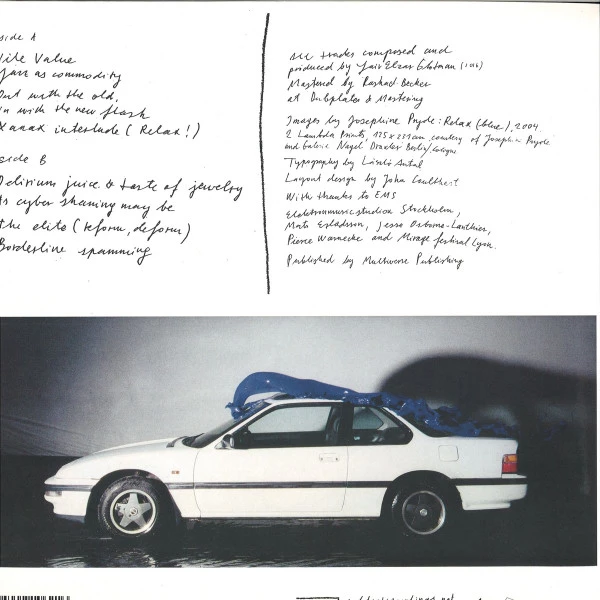 side A
Vile Value
Jazz as commodity
Out with the old,
in with the new flash
Xanax interlude (Relax!)
side B
Delirium juice & taste of jewelry
As cyber shaming may be
the elite (reform, deform)
Borderline spamming
All tracks composed and
produced by Yair Elazar Glotman (2016)
Mastered by Rashad Becker
at Dubplates & Mastering
Images by Josephine Pryde: Relax (blue), 2004.
2 Lambda Prints, courtesy of Josephine Pryde
and Galerie Nagel Draxler Berlin/Cologne
Typography by László Antal
Layout design by John Caulkert
With thanks to EMS
Elektronmusicstudion Stockholm,
Mats Erlandsson, Jesse Osborne-Lanthier,
Pierre Warnecke and Mirage festival Lyon.
Published by Multiverse Publishing